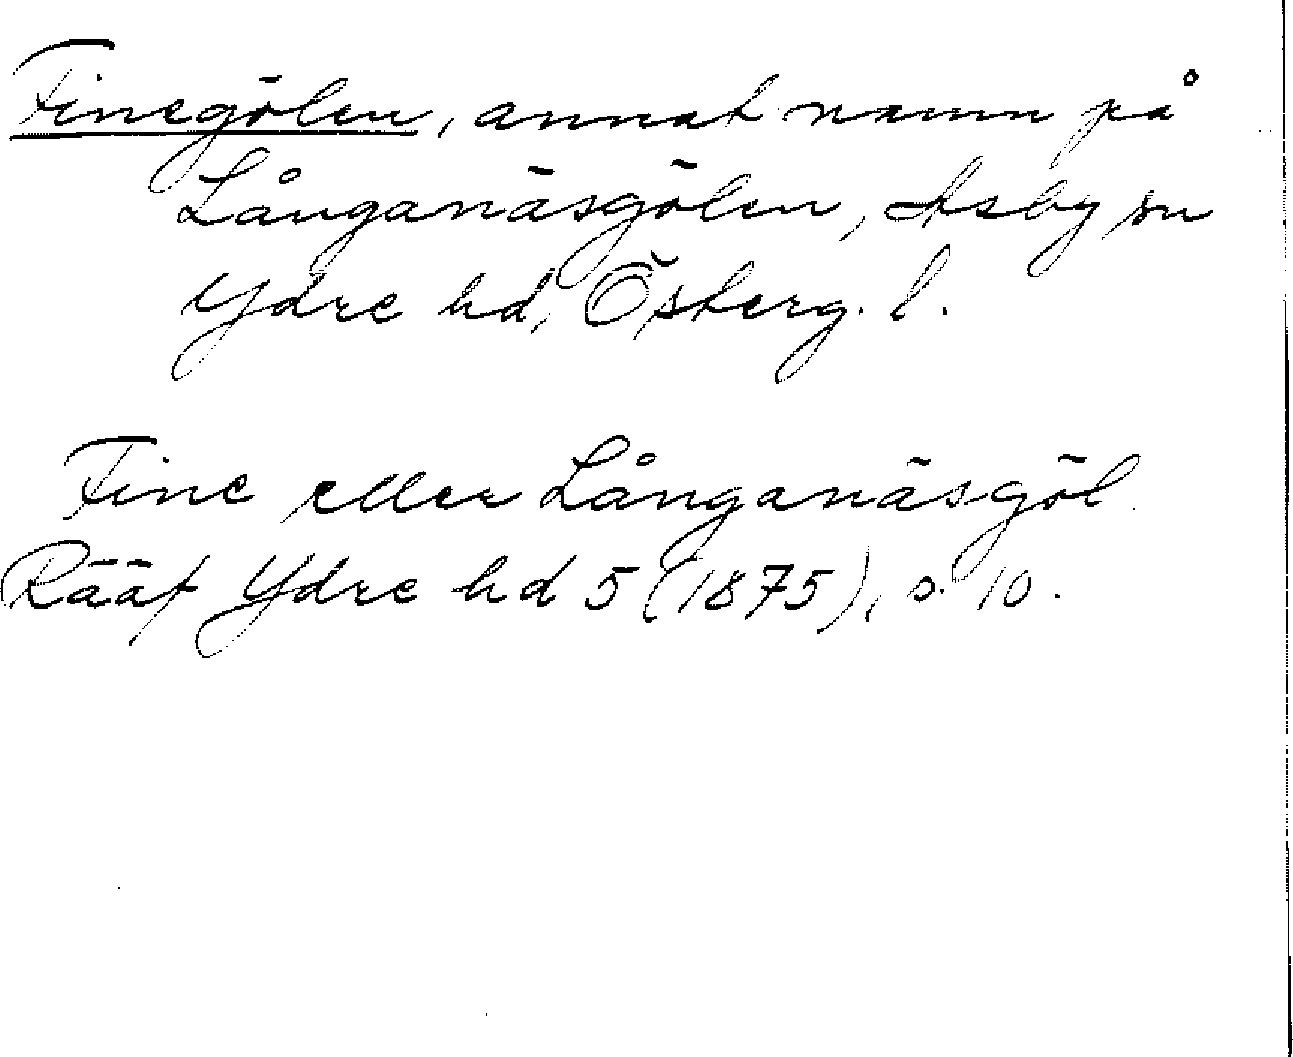 Finegölen, annat namn på
Långanäsgölen, Asby sn
Ydre hd, Österg. l.
Fine eller Långanäsgöl
Rääf Ydre hd 5 (1875), s. 10.